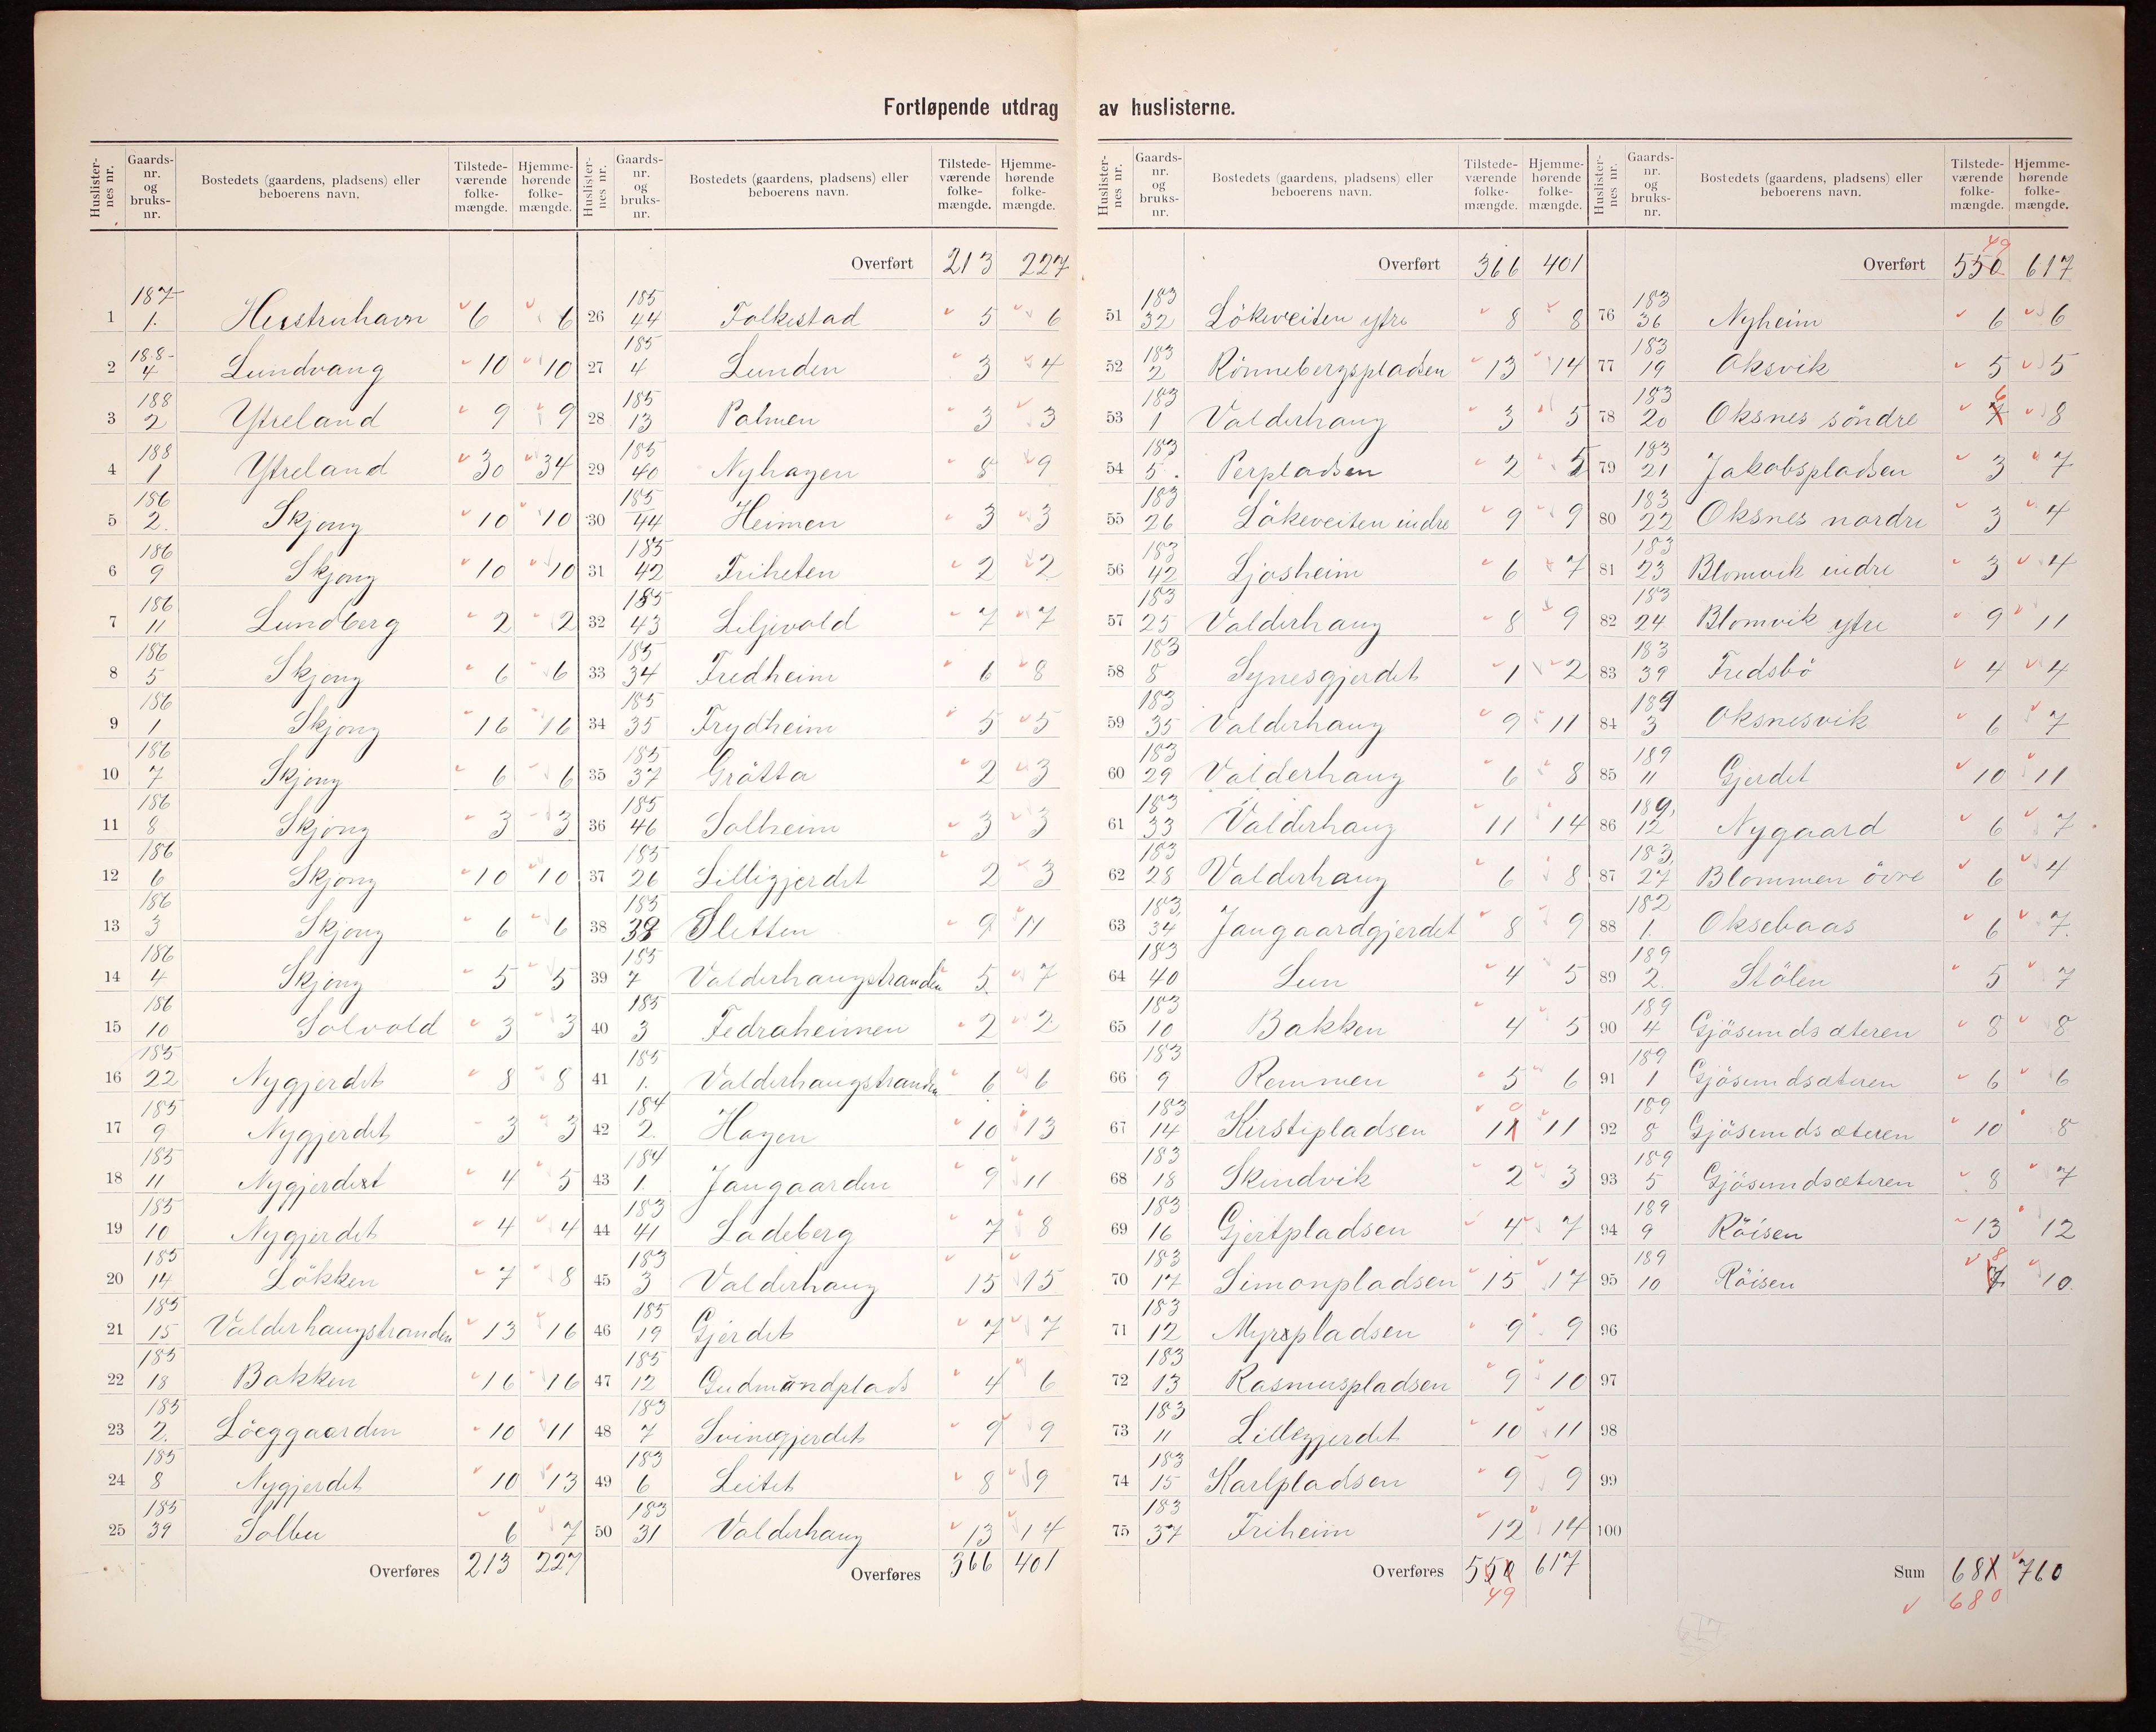 Fortløpende utdrag av huslisterne.
Huslister-nes nr. Gaards-nr. og bruks-nr. Bostedets (gaardens, pladsens) eller beboerens navn. Tilstede-værende folke-mængde. Hjemme-hørende folke-mængde.
1 187 1. Hustruhavn 6 6
2 188 4 Lundvang 10 10
3 188 2 Ytreland 9 9
4 188 1 Ytreland 30 34
5 186 2. Skjong 10 10
6 186 9 Skjong 10 10
7 186 11 Lundberg 2 2
8 186 5 Skjong 6 6
9 186 1 Skjong 16 16
10 186 7 Skjong 6 6
11 186 8 Skjong 3 3
12 186 6 Skjong 10 10
13 186 3 Skjong 6 6
14 186 4 Skjong 5 5
15 186 10 Solvold 3 3
16 185 22 Nygjerdet 8 8
17 185 9 Nygjerdet 3 3
18 185 11 Nygjerdet 4 5
19 185 10 Nygjerdet 4 4
20 185 14 Løkken 7 8
21 185 15 Valderhaugstranden 13 16
22 185 18 Bakken 16 16
23 185 2. Löeggaarden 10 11
24 185 8 Nygjerdet 10 13
25 185 39 Solbu 6 7
Overføres 213 227
Huslister-nes nr. Gaards-nr. og bruks-nr. Bostedets (gaardens, pladsens) eller beboerens navn. Tilstede-værende folke-mængde. Hjemme-hørende folke-mængde.
Overført 213 227
26 185 44 Folkestad 5 6
27 185 4 Lunden 3 4
28 185 13 Palmen 3 3
29 185 40 Nyhagen 8 9
30 185 44 Heimen 3 3
31 185 42 Friheten 2 2
32 185 43 Liljevold 7 7
33 185 34 Fredheim 6 8
34 185 35 Frydheim 5 5
35 185 37 Grötta 2 3
36 185 46 Solheim 3 3
37 185 26 Lilligjerdet 2 3
38 185 38 Sletten 9 11
39 185 7 Valderhaugstranden 5 7
40 185 3 Fedraheimen 2 2
41 185 1. Valderhaugstranden 6 6
42 184 2. Hagen 10 13
43 184 1 Jangaarden 9 11
44 183 41 Ladeberg 7 8
45 183 3 Valderhaug 15 15
46 185 19 Gjerdet 7 7
47 185 12 Gudmundplads 4 6
48 183 7 Svinegjerdet 9 9
49 183 6 Leitet 8 9
50 183 31 Valderhaug 13 14
Overføres 366 401
Huslister-nes nr. Gaards-nr. og bruks-nr. Bostedets (gaardens, pladsens) eller beboerens navn. Tilstede-værende folke-mængde. Hjemme-hørende folke-mængde.
Overført 366 401
51 183 32 Lökeveiten ytre 8 8
52 183 2 Rönnebergspladsen 13 14
53 183 1 Valderhaug 3 5
54 183 5. Perpladsen 2 5
55 183 26 Lökeveiten indre 9 9
56 183 42 Ljosheim 6 7
57 183 25 Valderhaug 8 9
58 183 8 Synesgjerdet 1 2
59 183 35 Valderhaug 9 11
60 183 29 Valderhaug 6 8
61 183 33 Valderhaug 11 14
62 183 28 Valderhaug 6 8
63 183 34 Jangaardgjerdet 8 9
64 183 40 Lun 4 5
65 183 10 Bakken 4 5
66 183 9 Remmen 5 6
67 183 14 Kirstipladsen 11 0 11
68 183 18 Skindvik 2 3
69 183 16 Gjertpladsen 4 7
70 183 17 Simonpladsen 15 17
71 183 12 Myrapladsen 9 9
72 183 13 Rasmuspladsen 9 10
73 183 11 Lillegjerdet 10 11
74 183 15 Karlpladsen 9 9
75 183 37 Friheim 12 14
Overføres 550 617
49
Huslister-nes nr. Gaards-nr. og bruks-nr. Bostedets (gaardens, pladsens) eller beboerens navn. Tilstede-værende folke-mængde. Hjemme-hørende folke-mængde.
49
Overført 550 617
76 183 36 Nyheim 6 6
77 183 19 Oksvik 5 5
78 183 20 Oksnes söndre 7 6 8
79 183 21 Jakobspladsen 3 7
80 183 22 Oksnes nordre 3 4
81 183 23 Blomvik indre 3 4
82 183 24 Blomvik ytre 9 11
83 183 39 Fredsbö 4 4
84 189 3 Oksnesvik 6 7
85 189 11 Gjerdet 10 11
86 189, 12 Nygaard 6 7
87 183, 27 Blommen övre 6 4
88 182 1. Oksebaas 6 7.
89 189 2. Stölen 5 7
90 189 4 Gjösundsæteren 8 8
91 189 1 Gjösundsæteren 6 6
92 189 8 Gjösundsæteren 10 8
93 189 5 Gjösundsæteren 8 7
94 189 9 Röisen 13 12
95 189 10 Röisen 7 8 10.
96
97
98
99
100
Sum 681 760
680
617